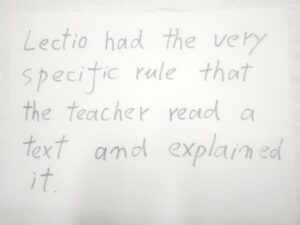 Lectio had the very
specific rule that
the teacher read a
text and explained
it.